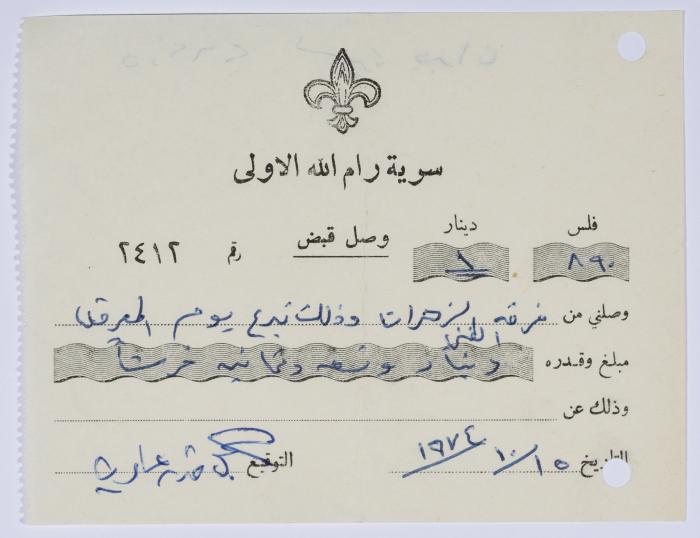 سرية رام الله الاولى
فلس دينار
٨٩٠ ١ وصل قبض رقم ٢٤١٢
وصلني من فرقة الزهرات وذلك تبرع يوم المعرض
الفني
مبلغ وقدره دينار وتسعه وثمانيه قرشاً
وذلك عن
التاريخ ١٥/١٠/١٩٧٤ التوقيع